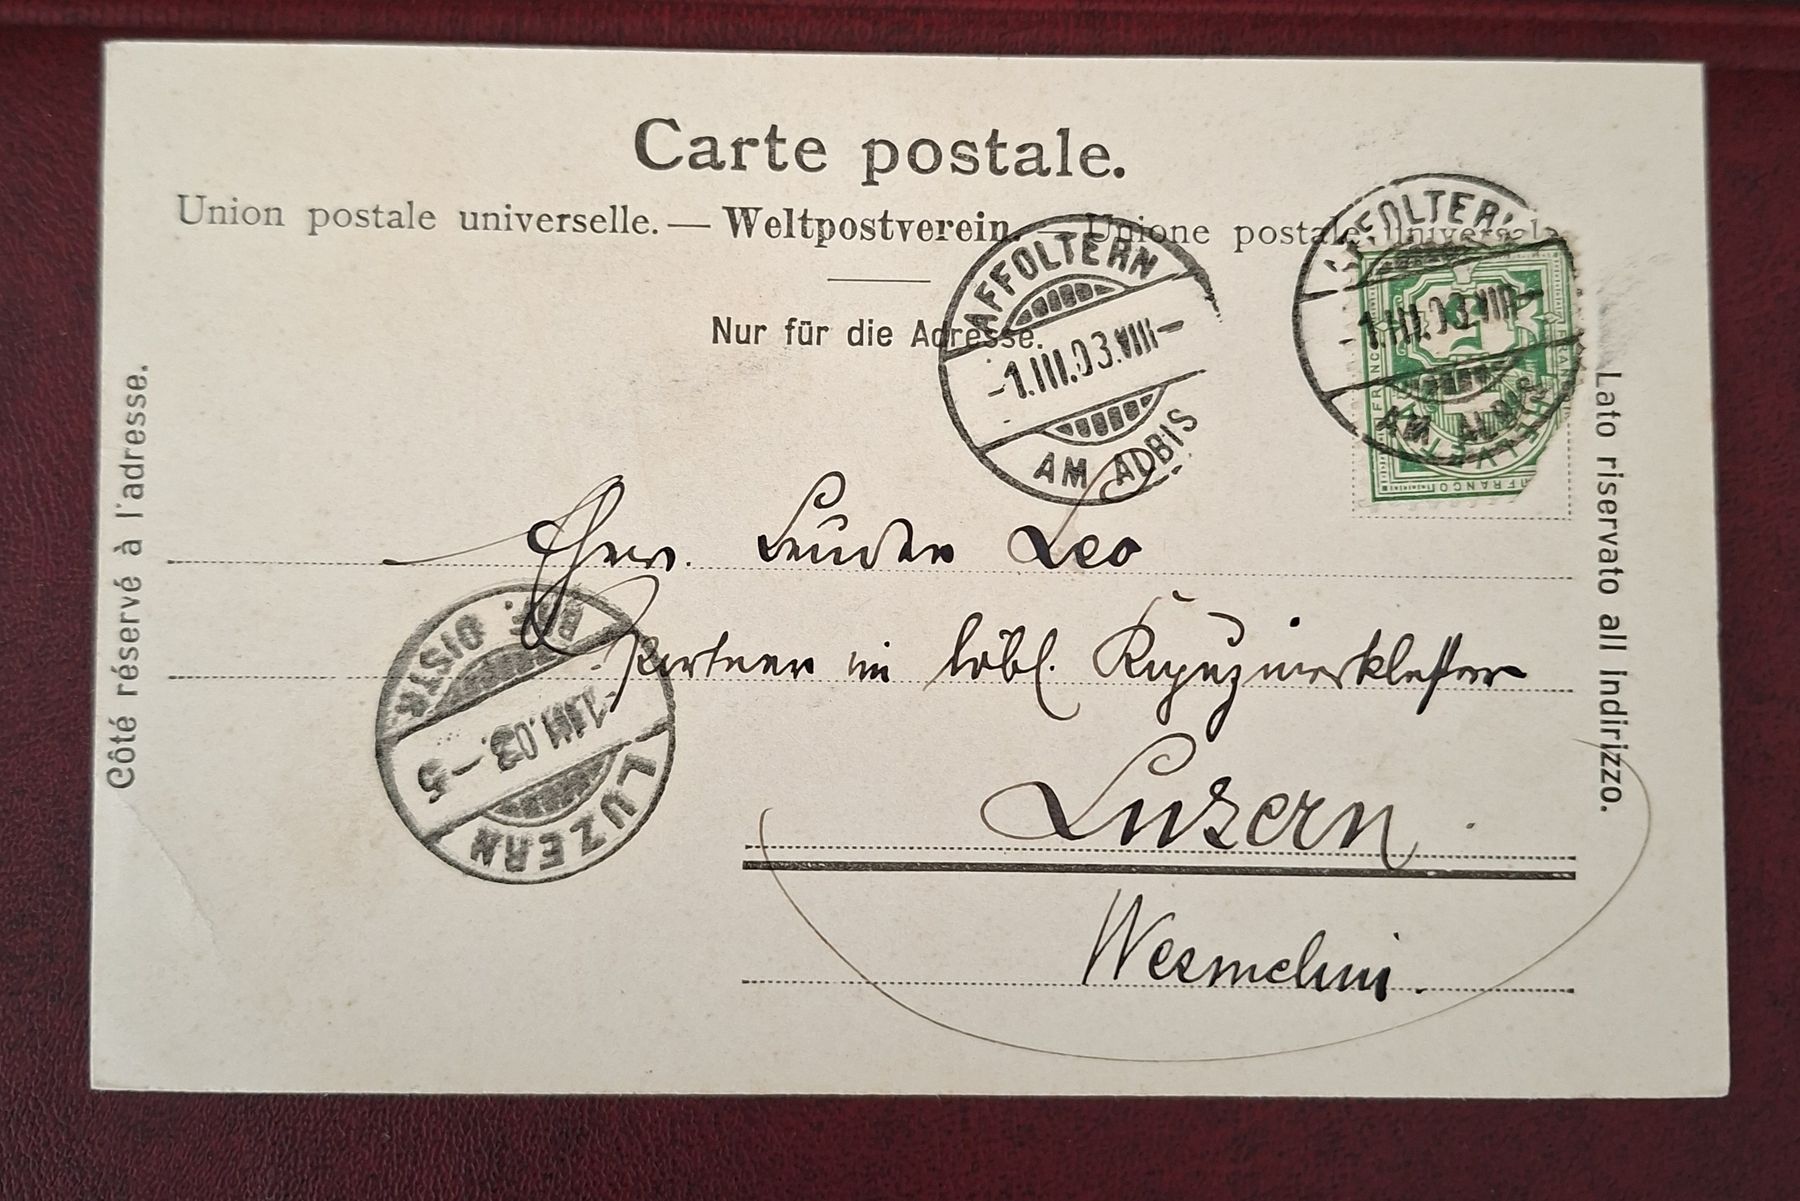 Carte postale.
Union postale universelle. — Weltpostverein. — Unione postale universale
Nur für die Adresse.
Côté réservé à l'adresse.
Lato riservato all indirizzo.
AFFOLTERN
-1.III.03.VIII-
AM ALBIS
AFFOLTERN
-1.III.03.VIII-
AM ALBIS
FRANCO
HELVETIA
Ehrw. Bruder Leo
Portner im löbl. Kapuzinerkloster
Luzern
Wesmelin.
LUZERN
1.III.03.-5
BRF. DISTR.